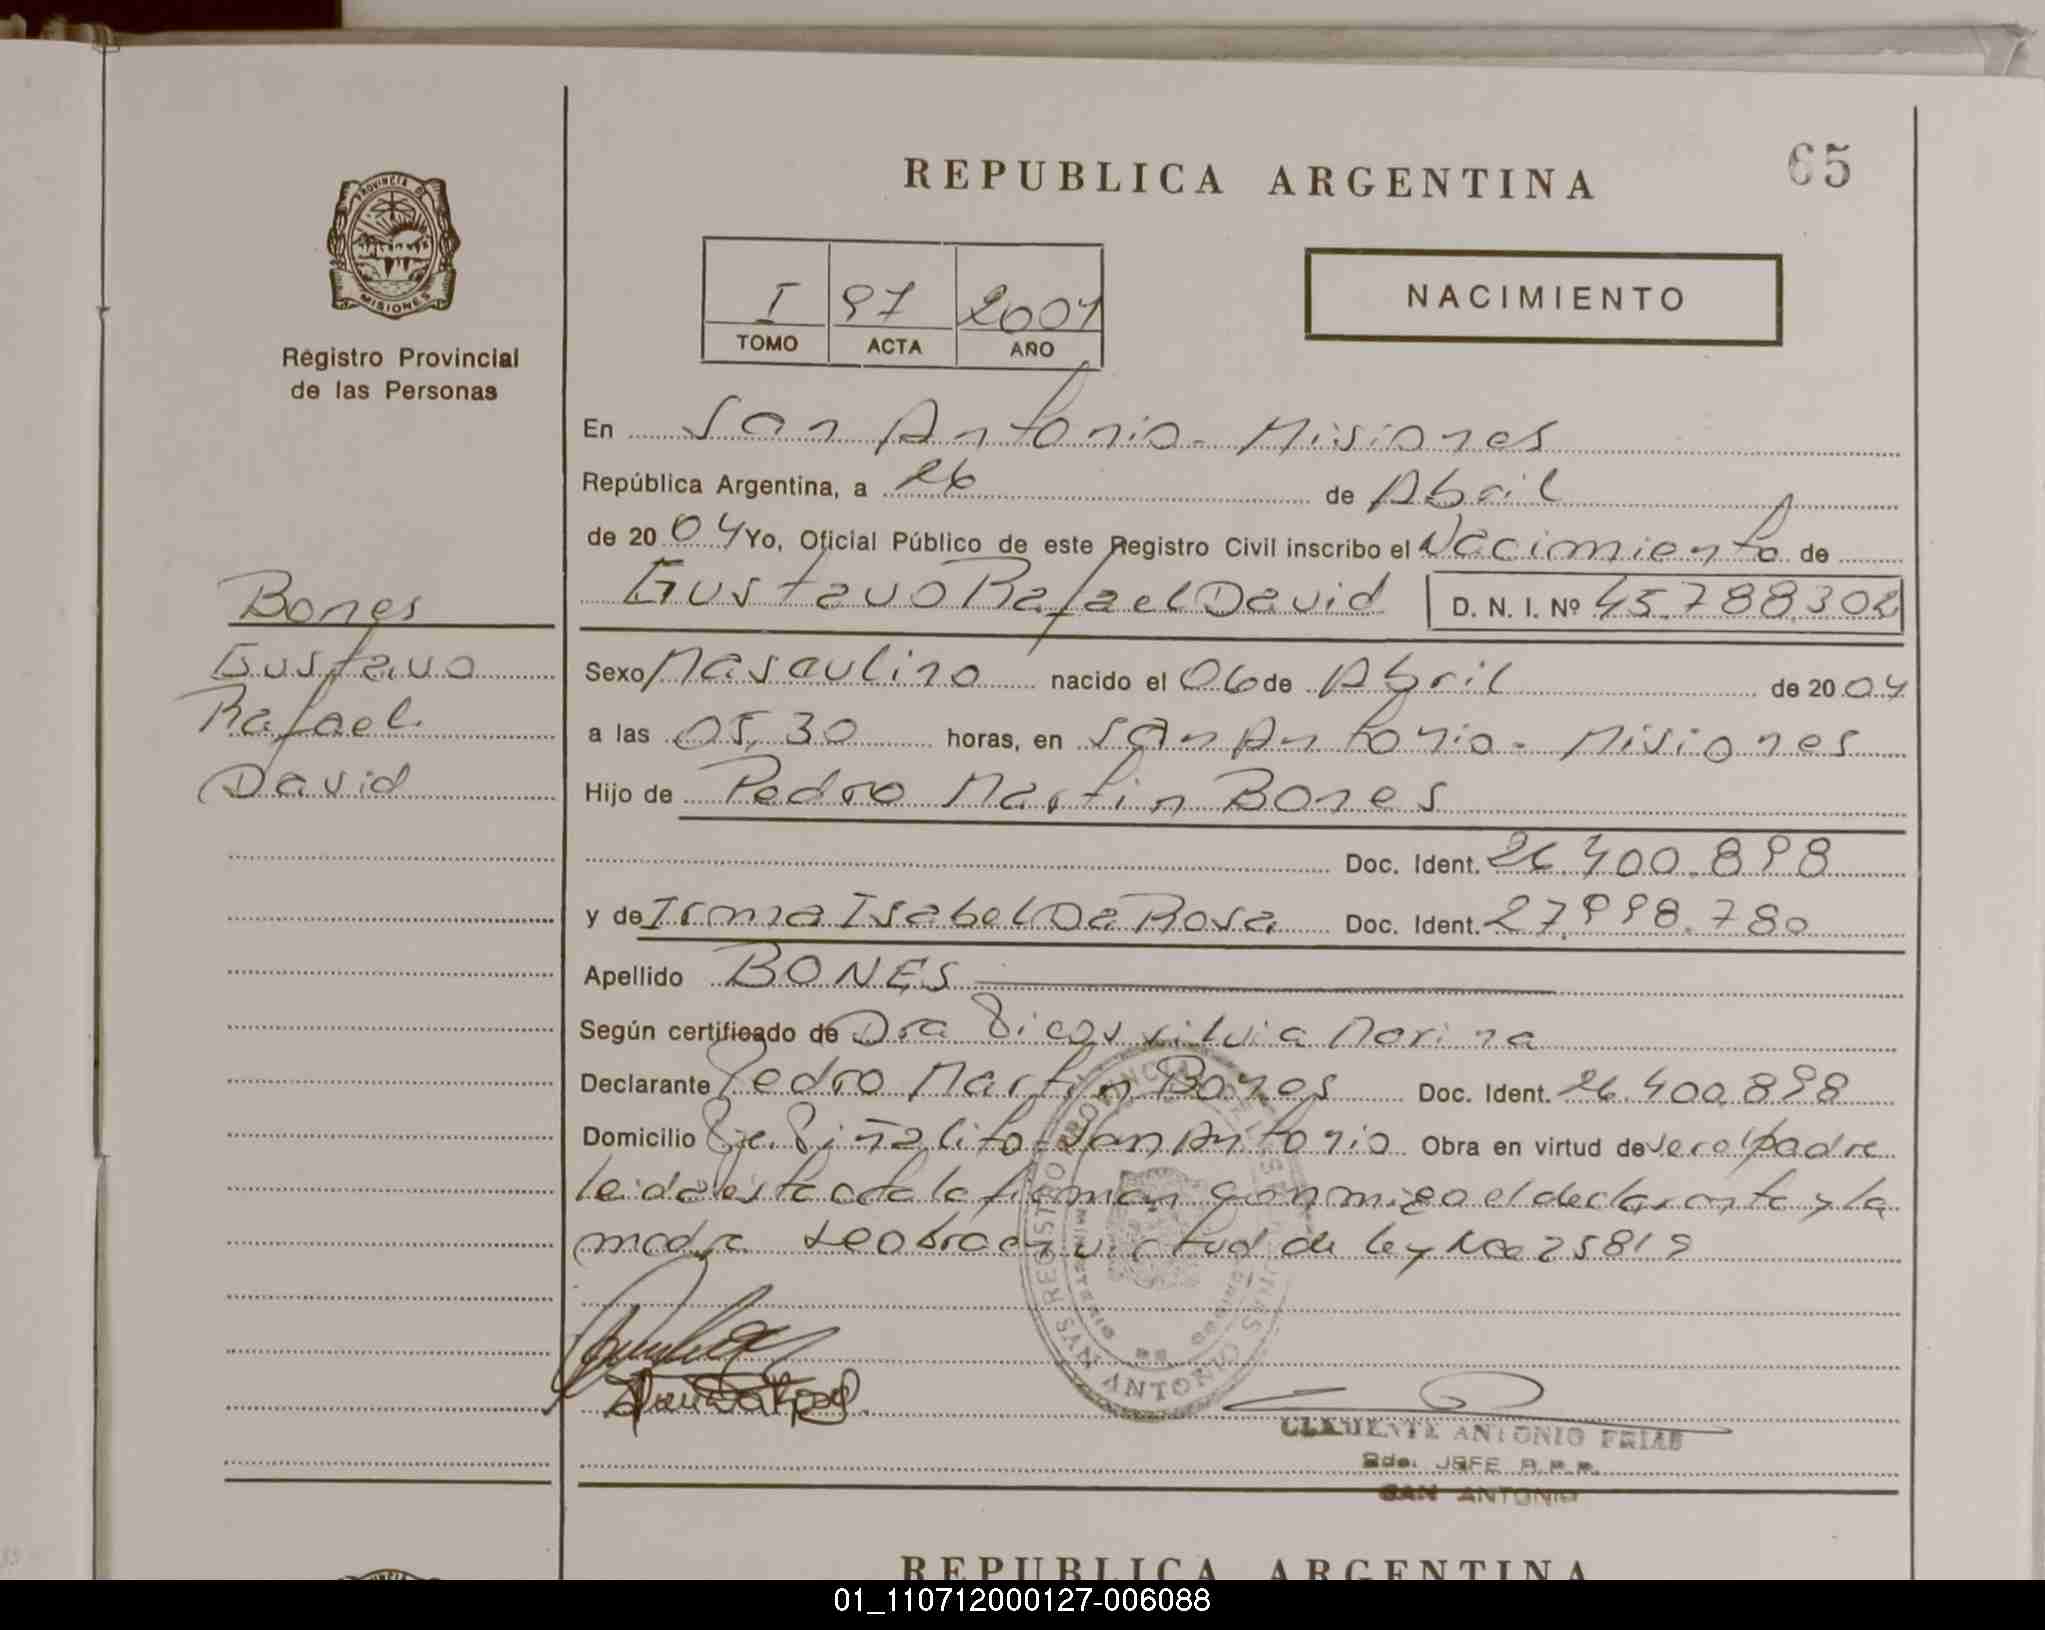 REPUBLICA ARGENTINA
65
PROVINCIA DE
MISIONES
Registro Provincial
de las Personas
I 97 2004
TOMO ACTA AÑO
NACIMIENTO
En San Antonio - Misiones
República Argentina, a 26 de Abril
de 20 04 Yo, Oficial Público de este Registro Civil inscribo el Nacimiento de
Gustavo Rafael David D. N. I. Nº 45.788.302
Bones
Gustavo
Rafael
David
Sexo Masculino nacido el 06 de Abril de 20 04
a las 05,30 horas, en San Antonio - Misiones
Hijo de Pedro Martin Bones
Doc. Ident. 26.400.898
y de Irma Isabel Da Rosa Doc. Ident. 27.998.780
Apellido BONES
Según certificado de Dra Silvia Marina
Declarante Pedro Martin Bones Doc. Ident. 26.400.898
Domicilio Piñalito - San Antonio Obra en virtud de ser el padre
leida esta acta la firman conmigo el declarante y la
madre se obra en virtud de ley Nro 25819
REGISTRO PROVINCIAL DE LAS
SAN ANTONIO
CLAUENTE ANTONIO FRIAS
JEFE R.P.P.
SAN ANTONIO
REPUBLICA ARGENTINA
01_110712000127-006088